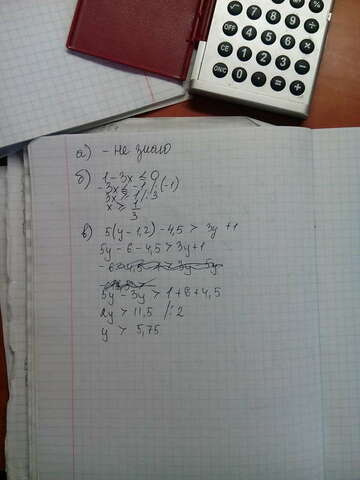 √ 7 8 9 ÷
OFF 4 5 6 ×
CE 1 2 3 -
ON/C 0 . = +
а) - не знаю
б) 1 - 3x ≤ 0
-3x ≤ -1 /·(-1)
3x ≥ 1 /:3
x ≥ 1/3
в) 5(y - 1,2) - 4,5 > 3y + 1
5y - 6 - 4,5 > 3y + 1
5y - 3y > 1 + 6 + 4,5
2y > 11,5 /:2
y > 5,75